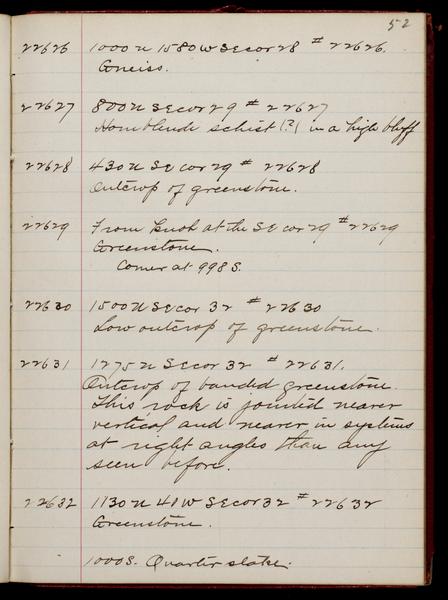 52
22626 1000 N 1580 W SE cor 28 # 22626.
Gneiss.
22627 800 N SE cor 29 # 22627
Hornblende schist (?) in a high bluff
22628 430 N SE cor 29 # 22628
Outcrop of greenstone.
22629 From knob at the SE cor 29 # 22629
Greenstone.
Corner at 998 S.
22630 1500 N SE cor 32 # 22630
Low outcrop of greenstone.
22631 1275 N SE cor 32 # 22631.
Outcrop of banded greenstone.
This rock is jointed nearer
vertical and nearer in systems
at right angles than any
seen before.
22632 1130 N 41 W SE cor 32 # 22632
Greenstone.
1000 S. Quarter stake.